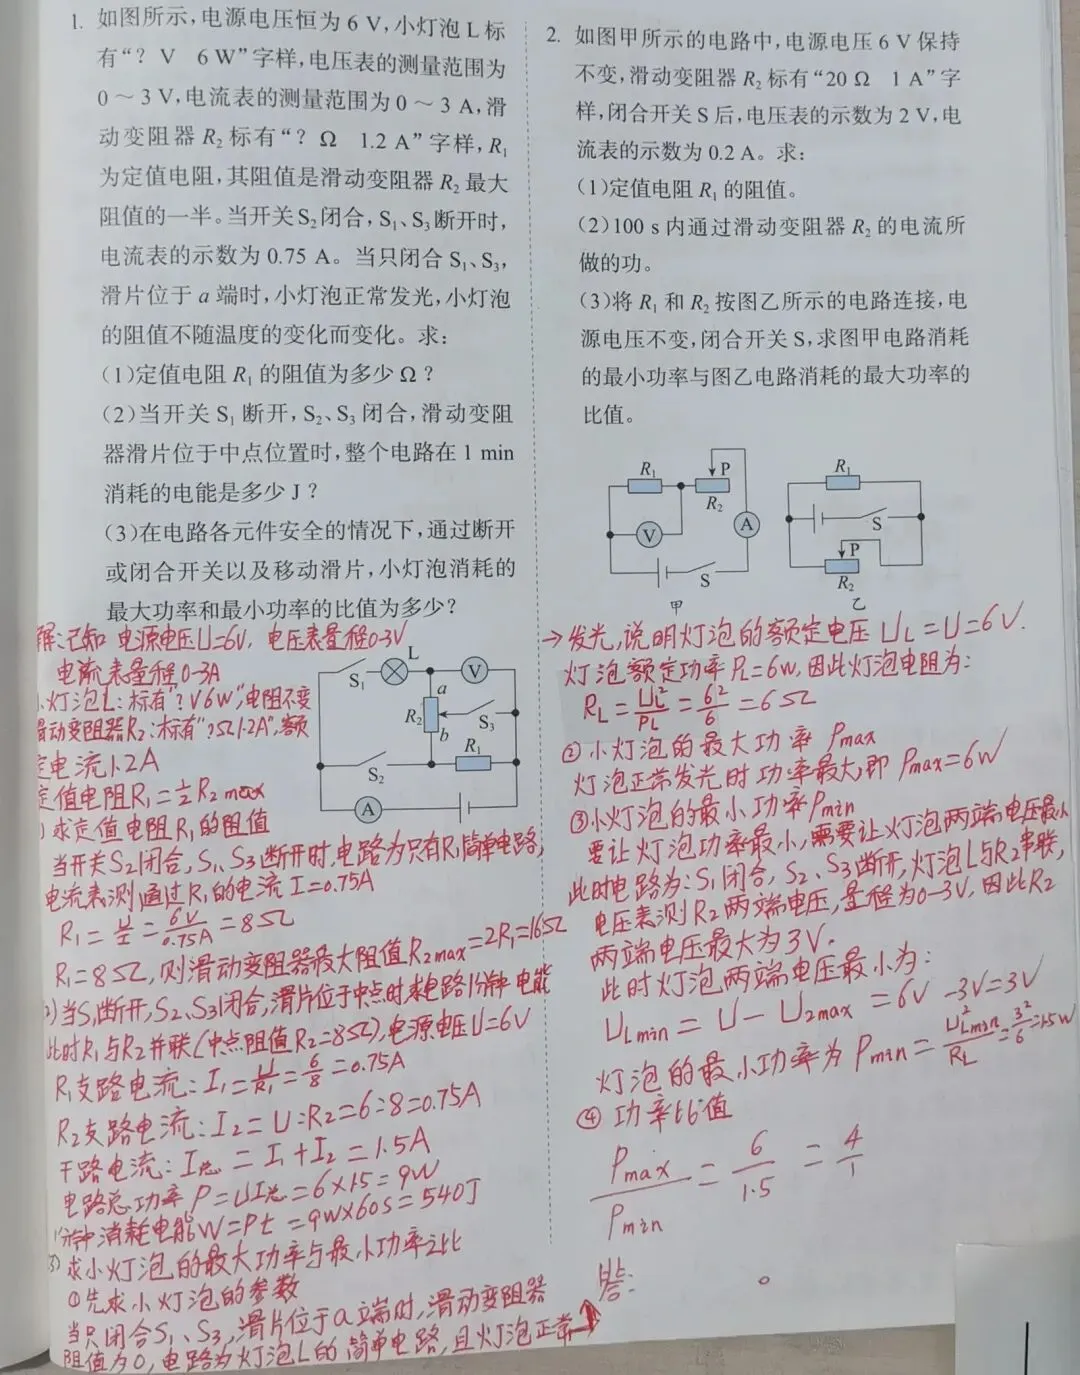 1. 如图所示,电源电压恒为 6 V,小灯泡 L 标
有“? V 6 W”字样,电压表的测量范围为
0～3 V,电流表的测量范围为 0～3 A,滑
动变阻器 R₂ 标有“? Ω 1.2 A”字样,R₁
为定值电阻,其阻值是滑动变阻器 R₂ 最大
阻值的一半。当开关 S₂ 闭合,S₁、S₃ 断开时,
电流表的示数为 0.75 A。当只闭合 S₁、S₃,
滑片位于 a 端时,小灯泡正常发光,小灯泡
的阻值不随温度的变化而变化。求:
(1)定值电阻 R₁ 的阻值为多少 Ω?
(2)当开关 S₁ 断开,S₂、S₃ 闭合,滑动变阻
器滑片位于中点位置时,整个电路在 1 min
消耗的电能是多少 J?
(3)在电路各元件安全的情况下,通过断开
或闭合开关以及移动滑片,小灯泡消耗的
最大功率和最小功率的比值为多少?
解:已知 电源电压U=6V, 电压表量程0-3V
电流表量程0-3A
小灯泡L:标有"?V6W",电阻不变
滑动变阻器R₂:标有"?Ω1.2A",额
定电流1.2A
定值电阻R₁=½R₂max
) 求定值电阻R₁的阻值
当开关S₂闭合,S₁、S₃断开时,电路为只有R₁简单电路,
电流表测通过R₁的电流I=0.75A
R₁=U/I=6V/0.75A=8Ω
R₁=8Ω,则滑动变阻器最大阻值R₂max=2R₁=16Ω
2)当S₁断开,S₂、S₃闭合,滑片位于中点时求电路1分钟电能
此时R₁与R₂并联(中点阻值R₂=8Ω),电源电压U=6V
R₁支路电流:I₁=U/R₁=6/8=0.75A
R₂支路电流:I₂=U:R₂=6:8=0.75A
干路电流:I总=I₁+I₂=1.5A
电路总功率P=UI总=6×1.5=9W
1分钟消耗电能W=Pt=9W×60s=540J
3) 求小灯泡的最大功率与最小功率之比
①先求小灯泡的参数
当只闭合S₁、S₃,滑片位于a端时,滑动变阻器
阻值为0,电路为灯泡L的简单电路,且灯泡正常
L
S₁
V
a
R₂
S₃
b
R₁
S₂
A
2. 如图甲所示的电路中,电源电压 6 V 保持
不变,滑动变阻器 R₂ 标有“20 Ω 1 A”字
样,闭合开关 S 后,电压表的示数为 2 V,电
流表的示数为 0.2 A。求:
(1)定值电阻 R₁ 的阻值。
(2)100 s 内通过滑动变阻器 R₂ 的电流所
做的功。
(3)将 R₁ 和 R₂ 按图乙所示的电路连接,电
源电压不变,闭合开关 S,求图甲电路消耗
的最小功率与图乙电路消耗的最大功率的
比值。
R₁
P
R₂
V
A
S
甲
R₁
S
P
R₂
乙
→发光,说明灯泡的额定电压UL=U=6V.
灯泡额定功率PL=6W,因此灯泡电阻为:
RL=UL²/PL=6²/6=6Ω
②小灯泡的最大功率Pmax
灯泡正常发光时功率最大,即Pmax=6W
③小灯泡的最小功率Pmin
要让灯泡功率最小,需要让灯泡两端电压最小
此时电路为:S₁闭合,S₂、S₃断开,灯泡L与R₂串联,
电压表测R₂两端电压,量程为0-3V,因此R₂
两端电压最大为3V.
此时灯泡两端电压最小为:
ULmin=U-U₂max=6V-3V=3V
灯泡的最小功率为Pmin=U²Lmin/RL=3²/6=1.5W
④功率比值
Pmax/Pmin=6/1.5=4/1
答: 。